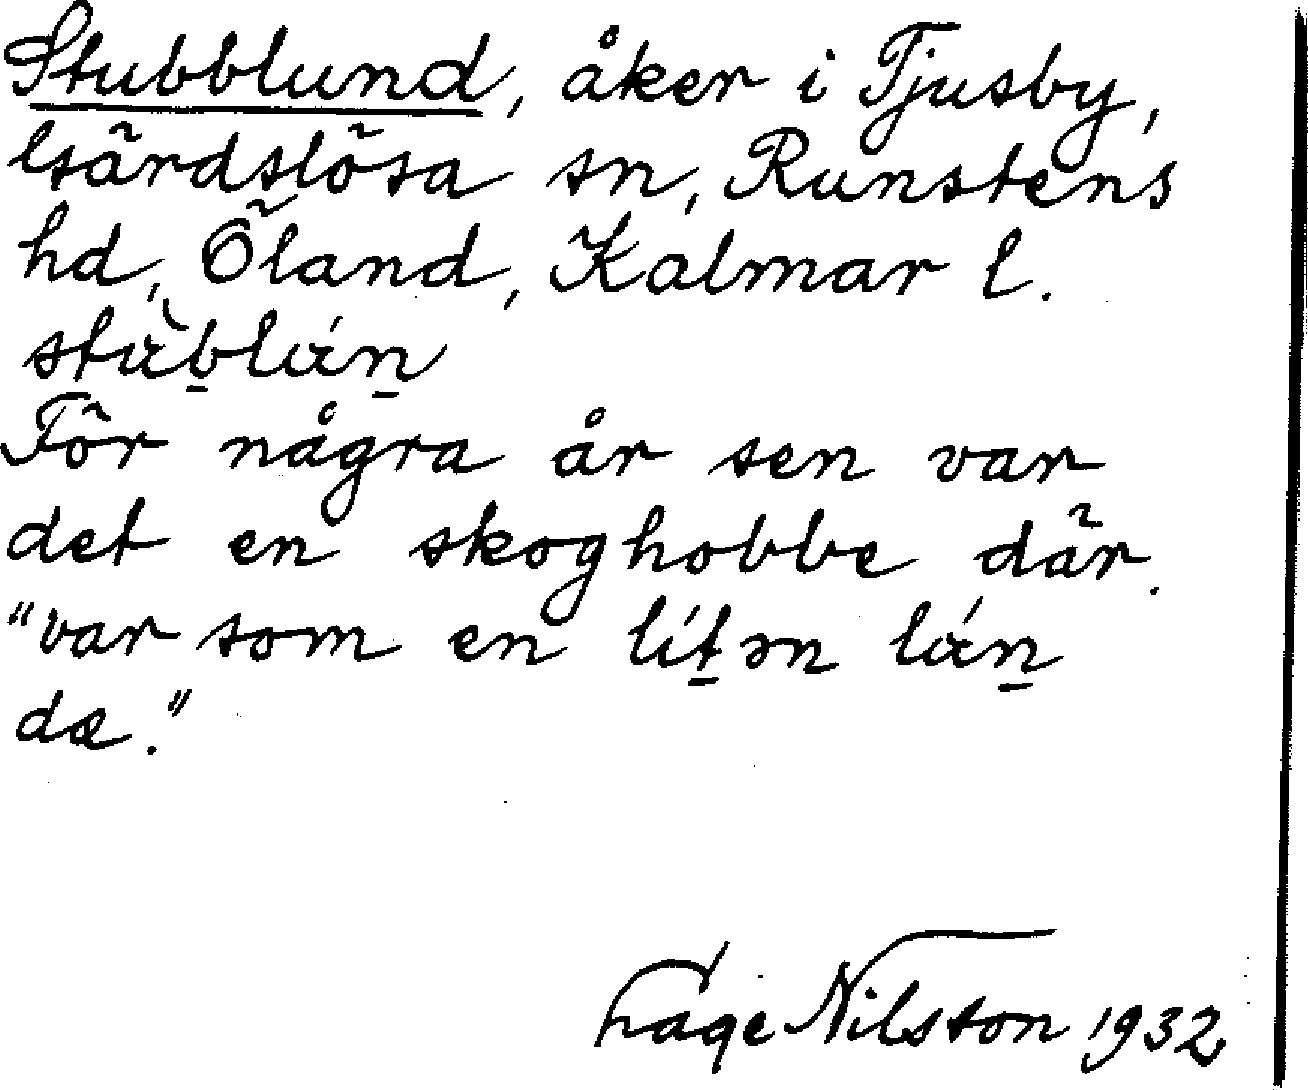 Stubblund, åker i Tjusby,
Gärdslösa sn, Runstens
hd, Öland, Kalmar l.
stὰb̠lάn̠
För några år sen var
det en skoghobbe där.
"var som en lít̠ən lάn̠
dæ."
Nilsson 1932